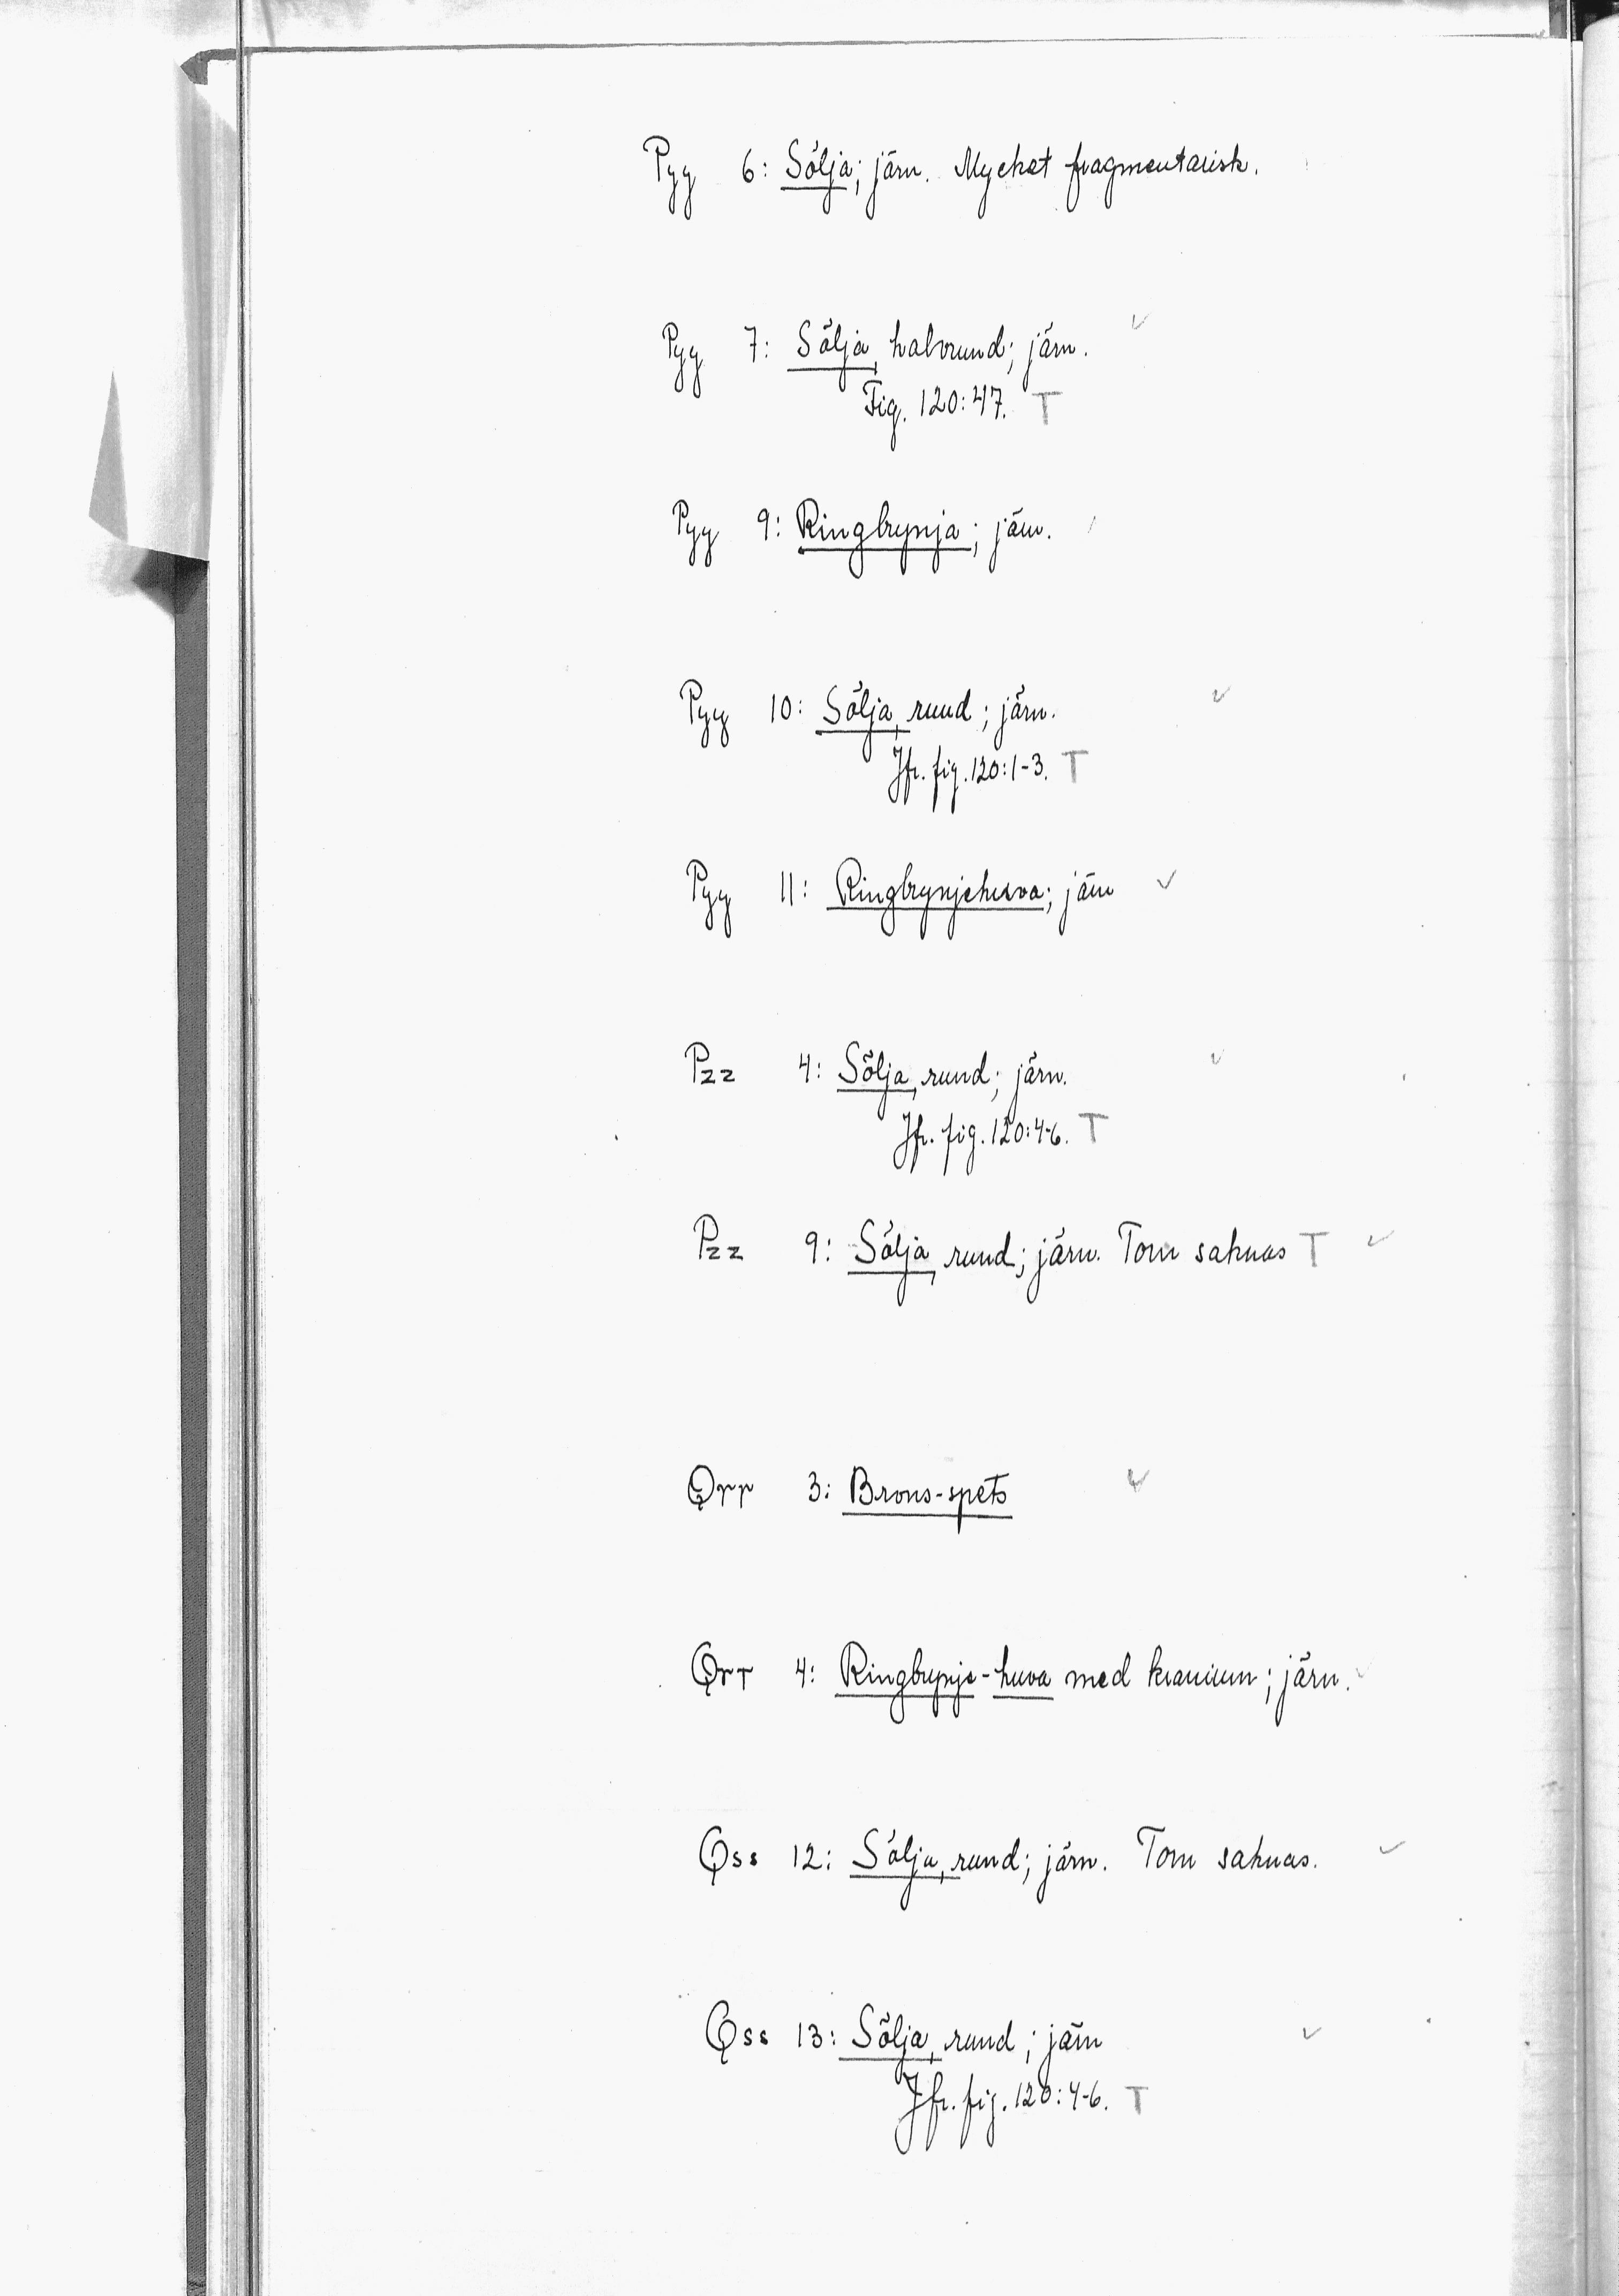 Pyy 6: Sölja; järn. Mycket fragmentarisk.
Pyy 7: Sölja, halvrund; järn.
Fig. 120:47. T
Pyy 9: Ringbrynja; järn.
Pyy 10: Sölja, rund; järn.
Jfr. fig. 120:1-3. T
Pyy 11: Ringbrynjehuva; järn
Pzz 4: Sölja, rund; järn.
Jfr. fig. 120:4-6. T
Pzz 9: Sölja, rund; järn. Torn saknas T
Qrr 3: Brons-spets
Qrr 4: Ringbrynje-huva med kranium; järn.
Qss 12: Sölja, rund; järn. Torn saknas.
Qss 13: Sölja, rund; järn
Jfr. fig. 120:4-6. T